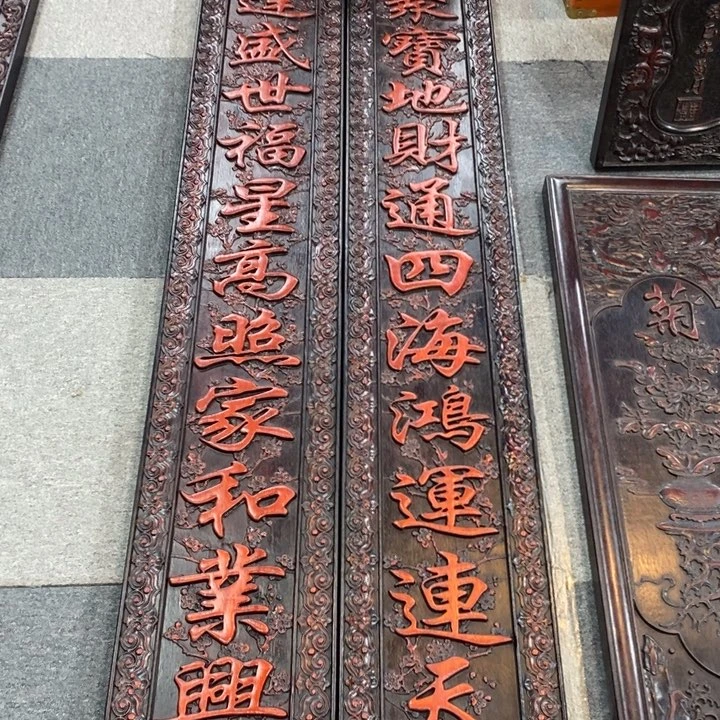 寶地財通四海鴻運連天
盛世福星高照家和業興
菊